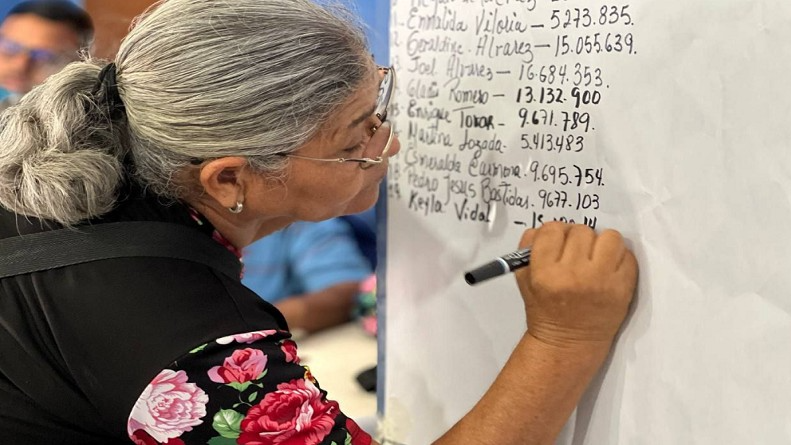 Enmalida Viloria – 5273.835.
Geraldine Alvarez – 15.055.639.
Joel Alvarez – 16.684.353.
Gladis Romero – 13.132.900
Enrique Tovar - 9.671.789.
Martina Lozada - 5.413.483
Esmeralda Carmona. 9.695.754.
Pedro Jesus Bastidas. 9677.103
Keyla Vidal –